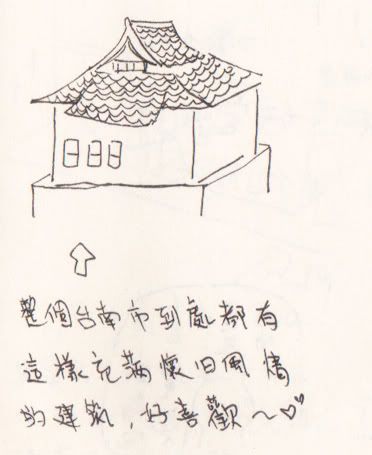 整個台南市到處都有
這樣充滿懷旧風情
的建築,好喜歡~♡♡